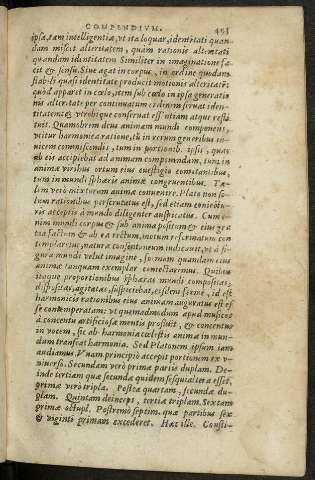 COMPENDIVM. 453
ipsa, tam intelligentiæ, vt ita loquar, identitati quan
dam miscet alteritatem, quàm rationis alteritati
quandam identitatem. Similiter in imaginatione fa
cit & sensu. Siue agat in corpus, in ordine quodam
stabili quasi identitate producit motionis alteritatē:
quòd apparet in cœlo, item sub cœlo in ipsa generatio
nis alteritate per continuatum ordinem seruat iden
titatem: & vtrobique conseruat essentiam atque resti
tuit. Quamobrem deus animam mundi componens,
vtitur harmonica ratione, tū in rerum generibus in-
uicem commiscendis, tum in portionib. ipsis, quas
ab eis accipiebat ad animam componendam, tum in
animæ viribus ortum eius vestigio comitantibus,
tum in mundi sphæris animæ congruentibus. Ta-
lem verò mixturam animæ conuenire, Plato non so-
lùm rationibus perscrutatus est, sed etiam coniectu-
ris acceptis à mundo diligenter auspicatus. Cum e-
nim mundi corpus & sub anima positum & eius gra
tia factum & ab ea rectum, motum formatum con
templaretur, naturæ consentaneum iudicauit, vt à fi
gura mundi velut imagine, formam quandam eius
animæ tanquam exemplar coniectaremur. Quibus
itaque proportionibus sphæras mundi compositas,
dispositas, agitatas, suspiciebat, eisdem fermè, id est
harmonicis rationibus eius animam auguratus est es
se contemperatam: vt quemadmodum apud musicos
à concentu artificiosæ mentis prosilit, & concentus
in vocem, sic ab harmonia cœlestis anima in mun-
dum transeat harmonia. Sed Platonem ipsum iam
audiamus. Vnam principiò accepit portionem ex v-
niuerso. Secundam verò primæ partis duplam. De-
inde tertiam quæ secunda quidem sesquialtera esset,
primæ verò tripla. Postea quartam, secundæ du-
plam. Quintam deinceps, tertiæ triplam. Sextam
primæ octupl. Postremò septim. quæ partibus sex
& viginti primam excederet. Hæc ille. Consti-